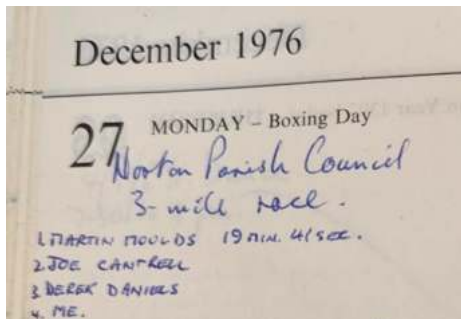 December 1976
27 MONDAY – Boxing Day
Norton Parish Council
3-mile race.
1. MARTIN MOULDS 19 MIN. 41 SEC.
2. JOE CANTRELL
3. DEREK DANIELS
4. ME.